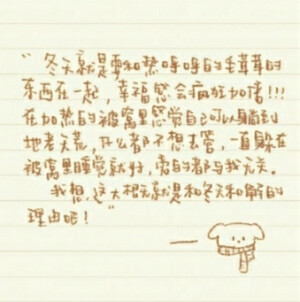 “冬天就是要和热呼呼的毛茸茸的
东西在一起，幸福感会疯狂加倍!!!
在加热的被窝里感觉自己可以躺到
地老天荒，什么都不想去管，一直躲在
被窝里睡觉就好，旁的都与我无关。
我想，这大概就是和冬天和解的
理由吧！”